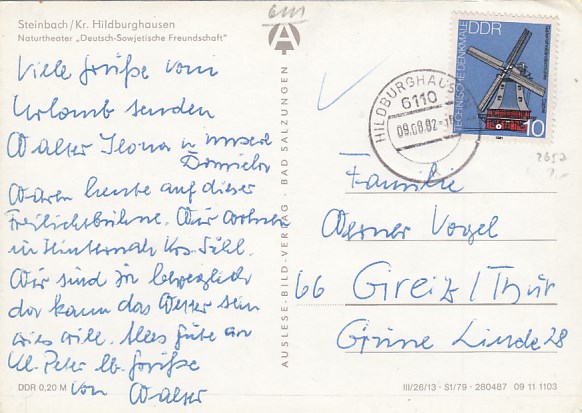 Steinbach/Kr. Hildburghausen
Naturtheater „Deutsch-Sowjetische Freundschaft"
Viele Grüße vom
Urlaub senden
Walter Ilona u unsere
Daniela
Waren heute auf dieser
Freilichtbühne. Wir wohnen
in Hinternah Krs. Suhl.
Wir sind ja beweglich
da kann das Wetter sein
wies will. Alles Gute an
Kl. Peter lb. Grüße
von Walter
DDR 0,20 M
AUSLESE-BILD-VERLAG · BAD SALZUNGEN
A
DDR
TECHNISCHE DENKMALE
10
1981
HILDBURGHAUSEN
6110
09.08.82
Familie
Werner Vogel
66 Greiz/Thür
Grüne Linde 28
III/26/13 · S1/79 · 280487 09 11 1103